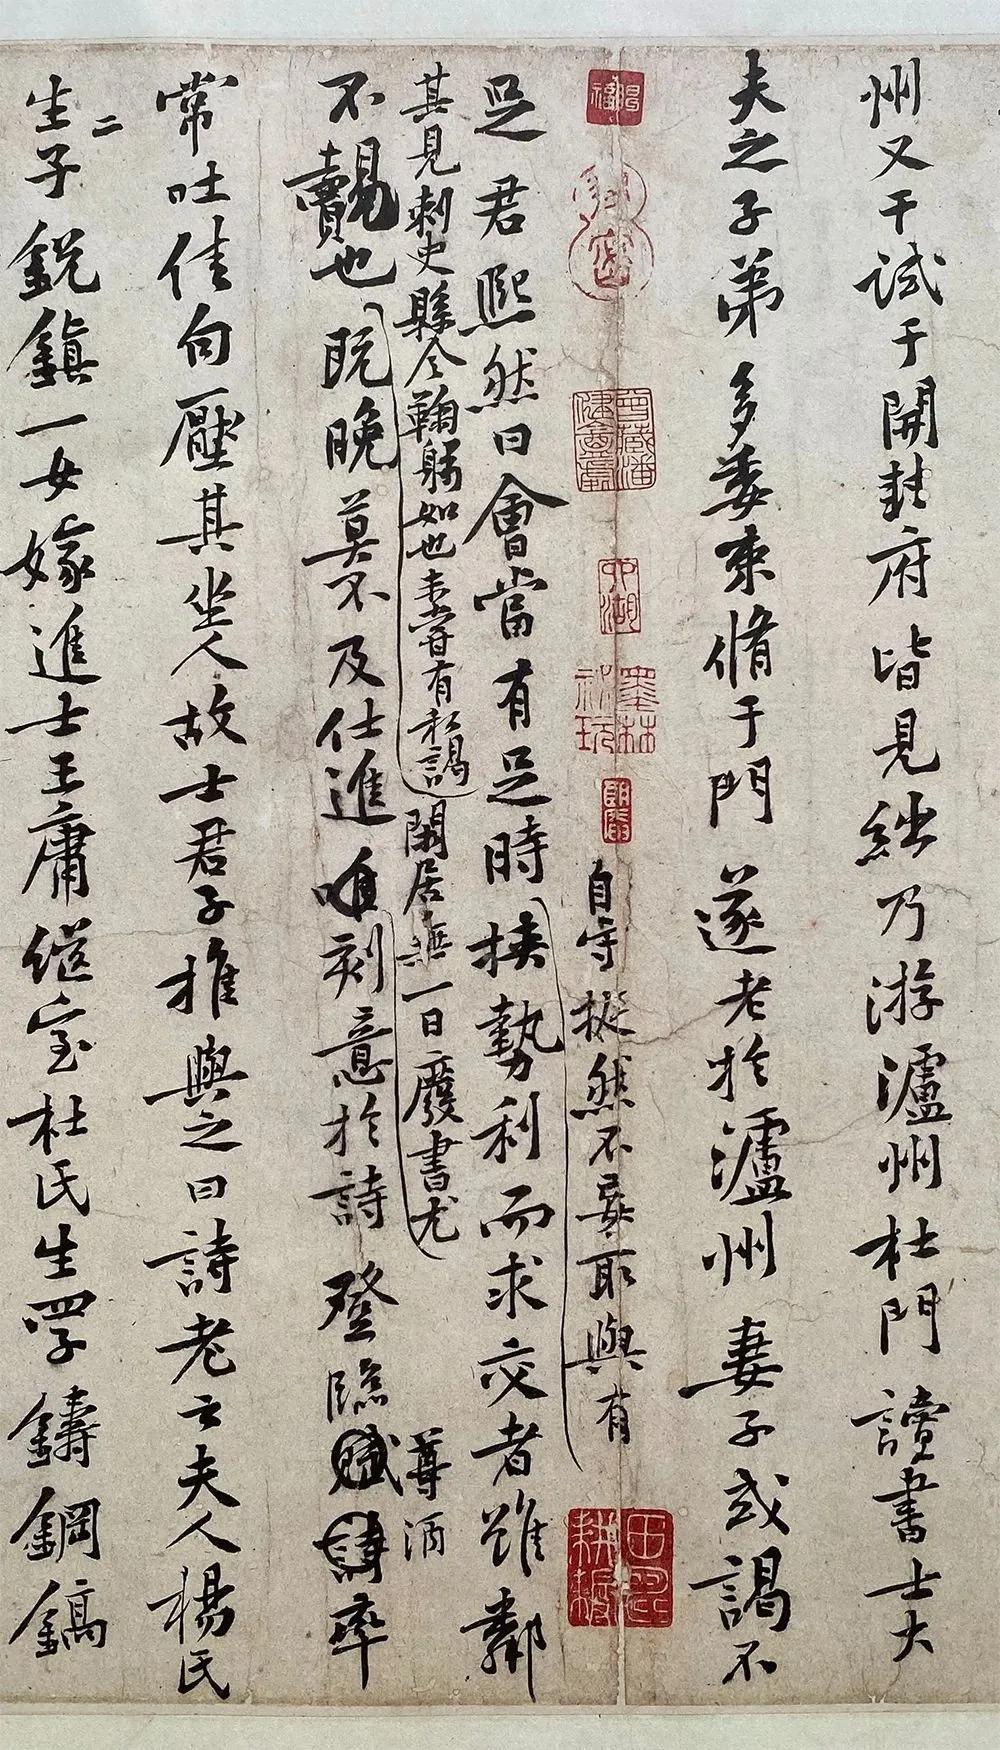 州又干試于開封府皆見絀乃游瀘州杜門讀書士大
夫之子弟多委束脩于門遂老於瀘州妻子或謁不
自守挺然不妄取與有
足君熙然曰會當有足時挾勢利而求交者雖鄰
其見刺史縣令鞠躬如也未嘗有私謁閑居無一日廢書尤
尊酒
不覿也既晚莫不及仕進唯刻意於詩登臨賦詩率
常吐佳句壓其坐人故士君子推與之曰詩老云夫人楊氏
生二子銳鎮一女嫁進士王庸繼室杜氏生四子鑄鋼鎬
墨林
田
耕